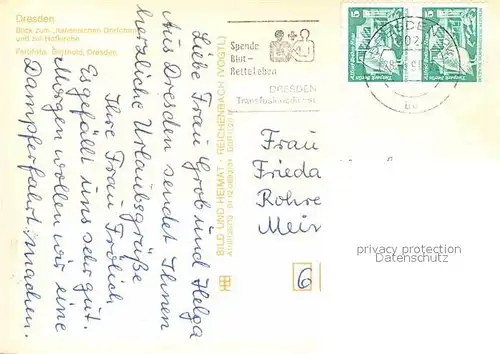 Dresden
Blick zum „Italienischen Dörfchen“
und zur Hofkirche
Liebe Frau Grob und Helga
Aus Dresden sendet Ihnen
herzliche Urlaubsgrüße
Ihre Frau Fröhlich
Es gefällt uns sehr gut.
Morgen wollen wir eine
Dampferfahrt machen.
BILD UND HEIMAT · REICHENBACH (VOGTL)
Spende
Blut-
Rette Leben
DRESDEN
Transfusionsdienst
5
5
Frau
Frieda
Rohre
Mein
6
privacy protection
Datenschutz